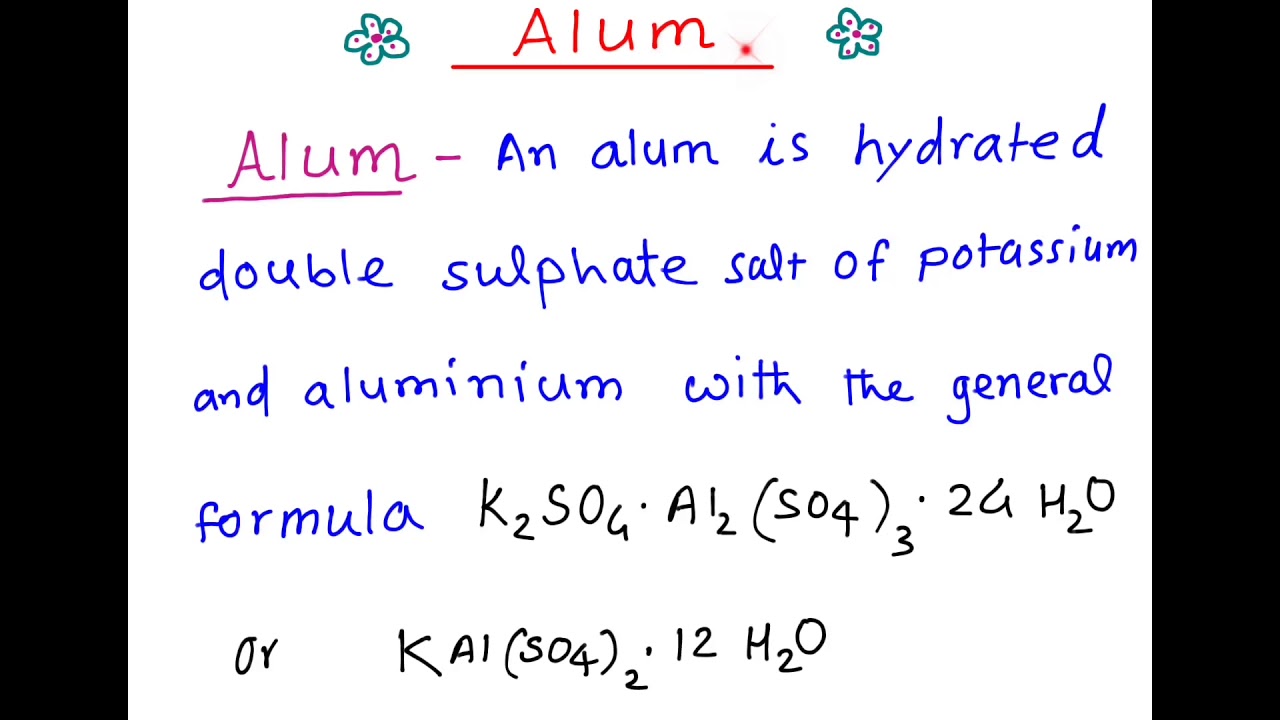 Alum
Alum - An alum is hydrated
double sulphate salt of potassium
and aluminium with the general
formula K₂SO₄·Al₂(SO₄)₃·24 H₂O
or KAl(SO₄)₂·12 H₂O